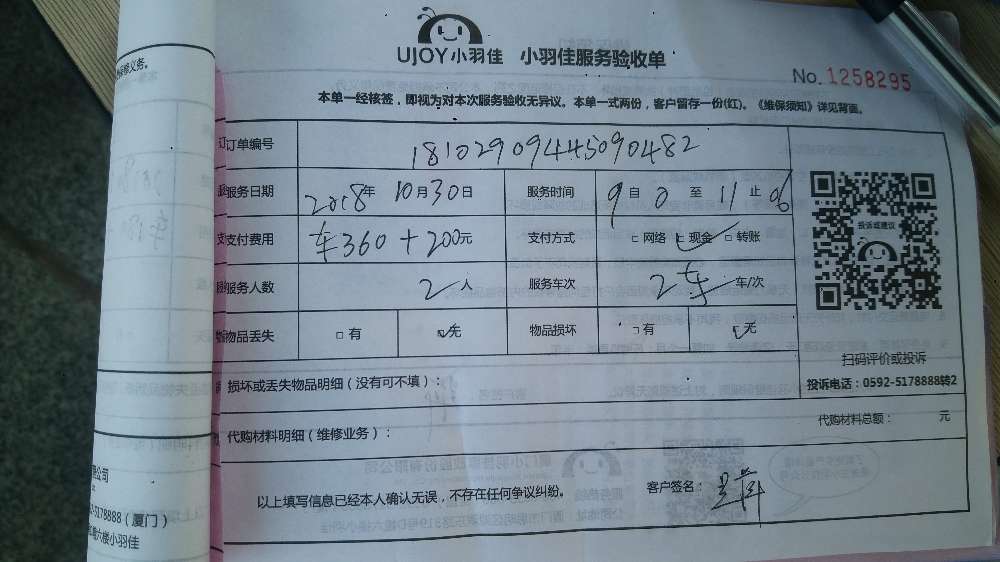 UJOY小羽佳 小羽佳服务验收单
No. 1258295
本单一经核签，即视为对本次服务验收无异议。本单一式两份，客户留存一份(红)。《维保须知》详见背面。
订单编号 18102909445090482
服务日期 2018年 10月30日 服务时间 9自0至11止06
支付费用 车360+200元 支付方式 □网络 现金 □转账
服务人数 2人 服务车次 2车 车/次
物品丢失 □有 无 物品损坏 □有 无
投诉或建议
扫码评价或投诉
投诉电话：0592-5178888转2
损坏或丢失物品明细（没有可不填）：
代购材料明细（维修业务）： 代购材料总额： 元
以上填写信息已经本人确认无误，不存在任何争议纠纷。 客户签名：
修义务。
限公司
-5178888（厦门）
六楼小羽佳